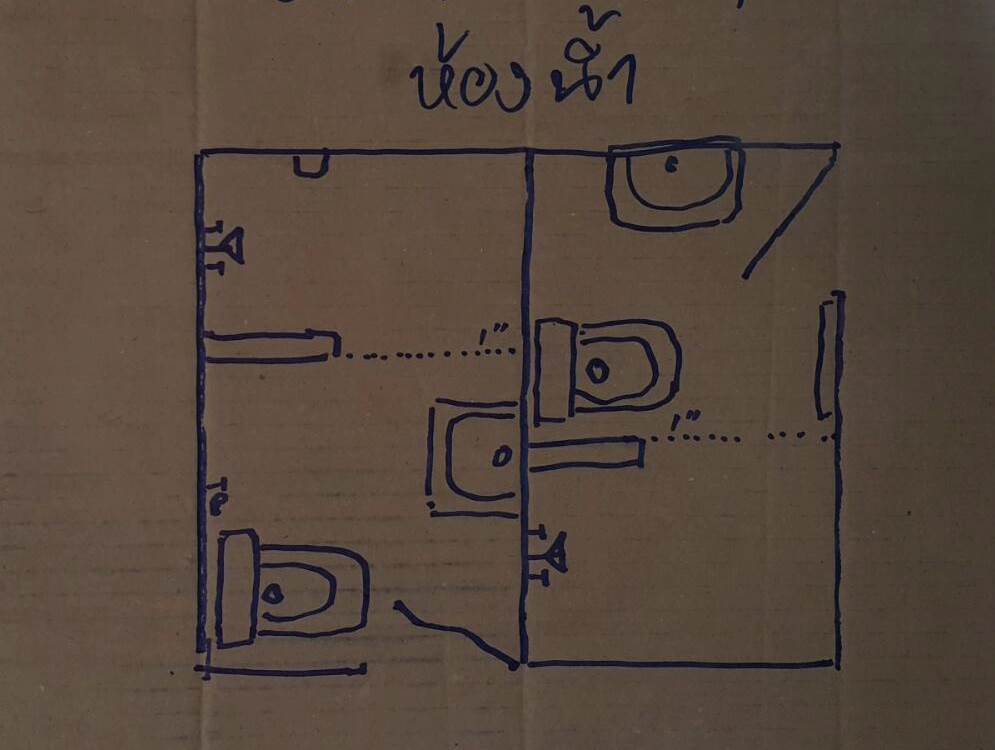 ห้องน้ำ
1"
1"